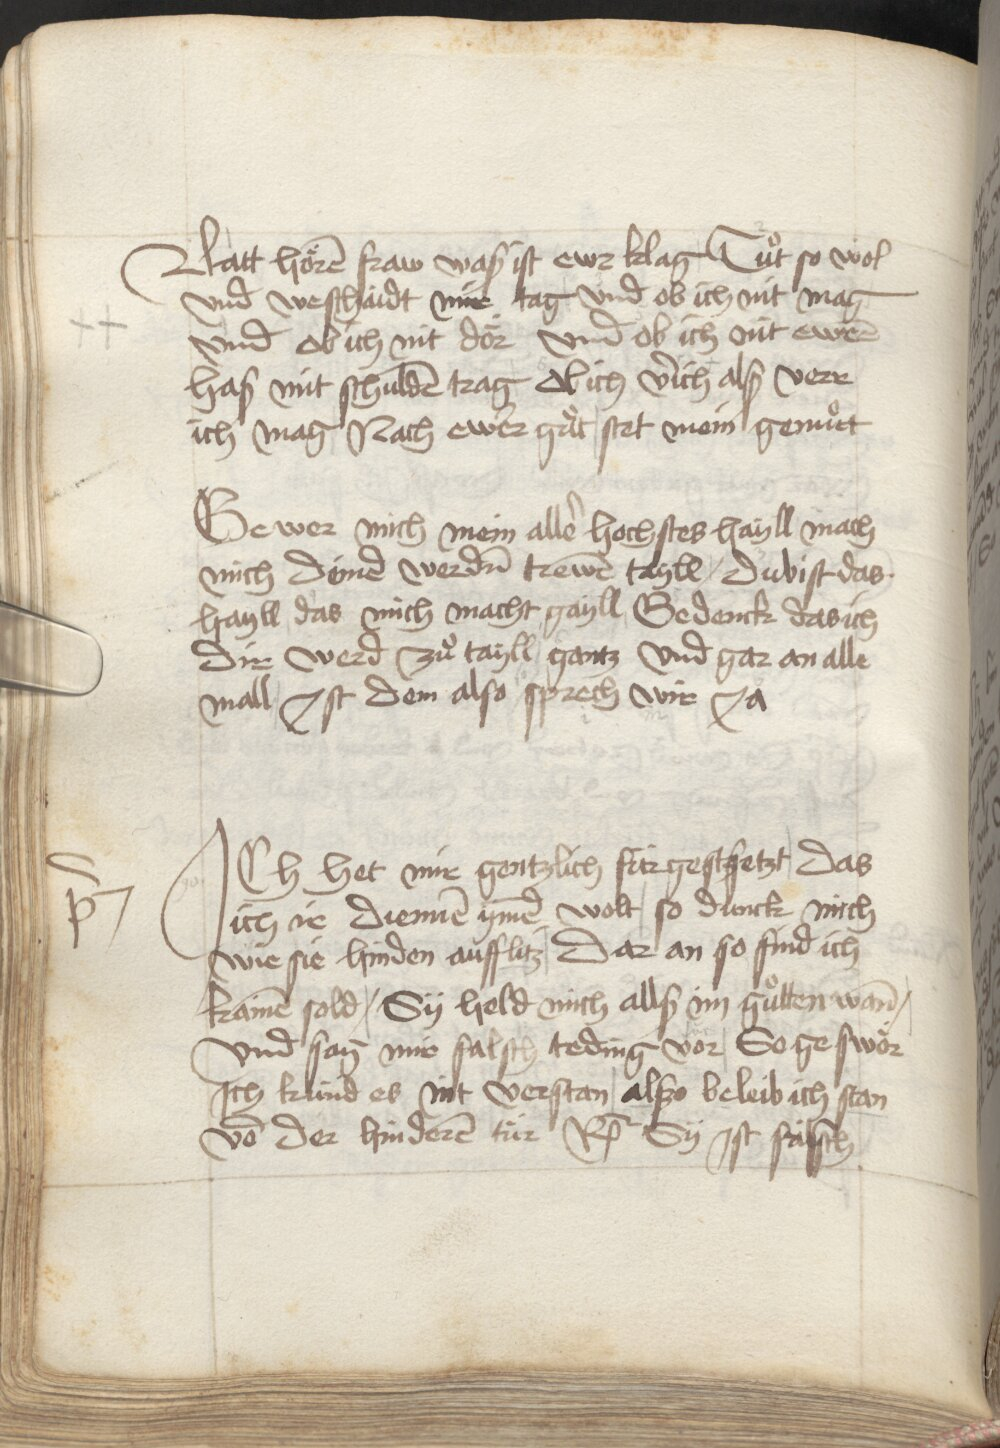 Latt hören fraw waß ist ewr klag Tuͦt so wol
vndweschaidt mir tag vnd ob ich nit mag
vnd ob ich nit dör vnd ob ich nit ewrē
haß mit schuldē trag Ob ich v̄ich alß verr
ich mag Nach ewer guͤt stet mein gemuͦet
Gewer mich mein allē hochstes hayll mach
mich deinē werdn̄ trewē tayll / du bist das
hayll das mich macht gayll Gedenck das ich
dir werd zuͦ tayll gantz vnd gar an alle
mall Ist dem also sprech wir Ja
ICh het mir gentzlich für gestsetzt das
ich ir diennē ym̄ē wolt so dunck mich
wie sie hinden aufflitz Dar an so find ich
kainē sold / Sy held mich allß im guͦtten wan̄ /
vnd sag mir falsch teding vor So ge swör
Ich kund es nit verstan alßo beleib ich stan
vō der hinderē tür Rp̄ Sy Ist falsch